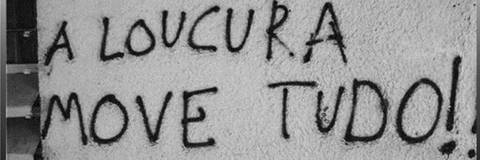 A LOUCURA
MOVE TUDO!!